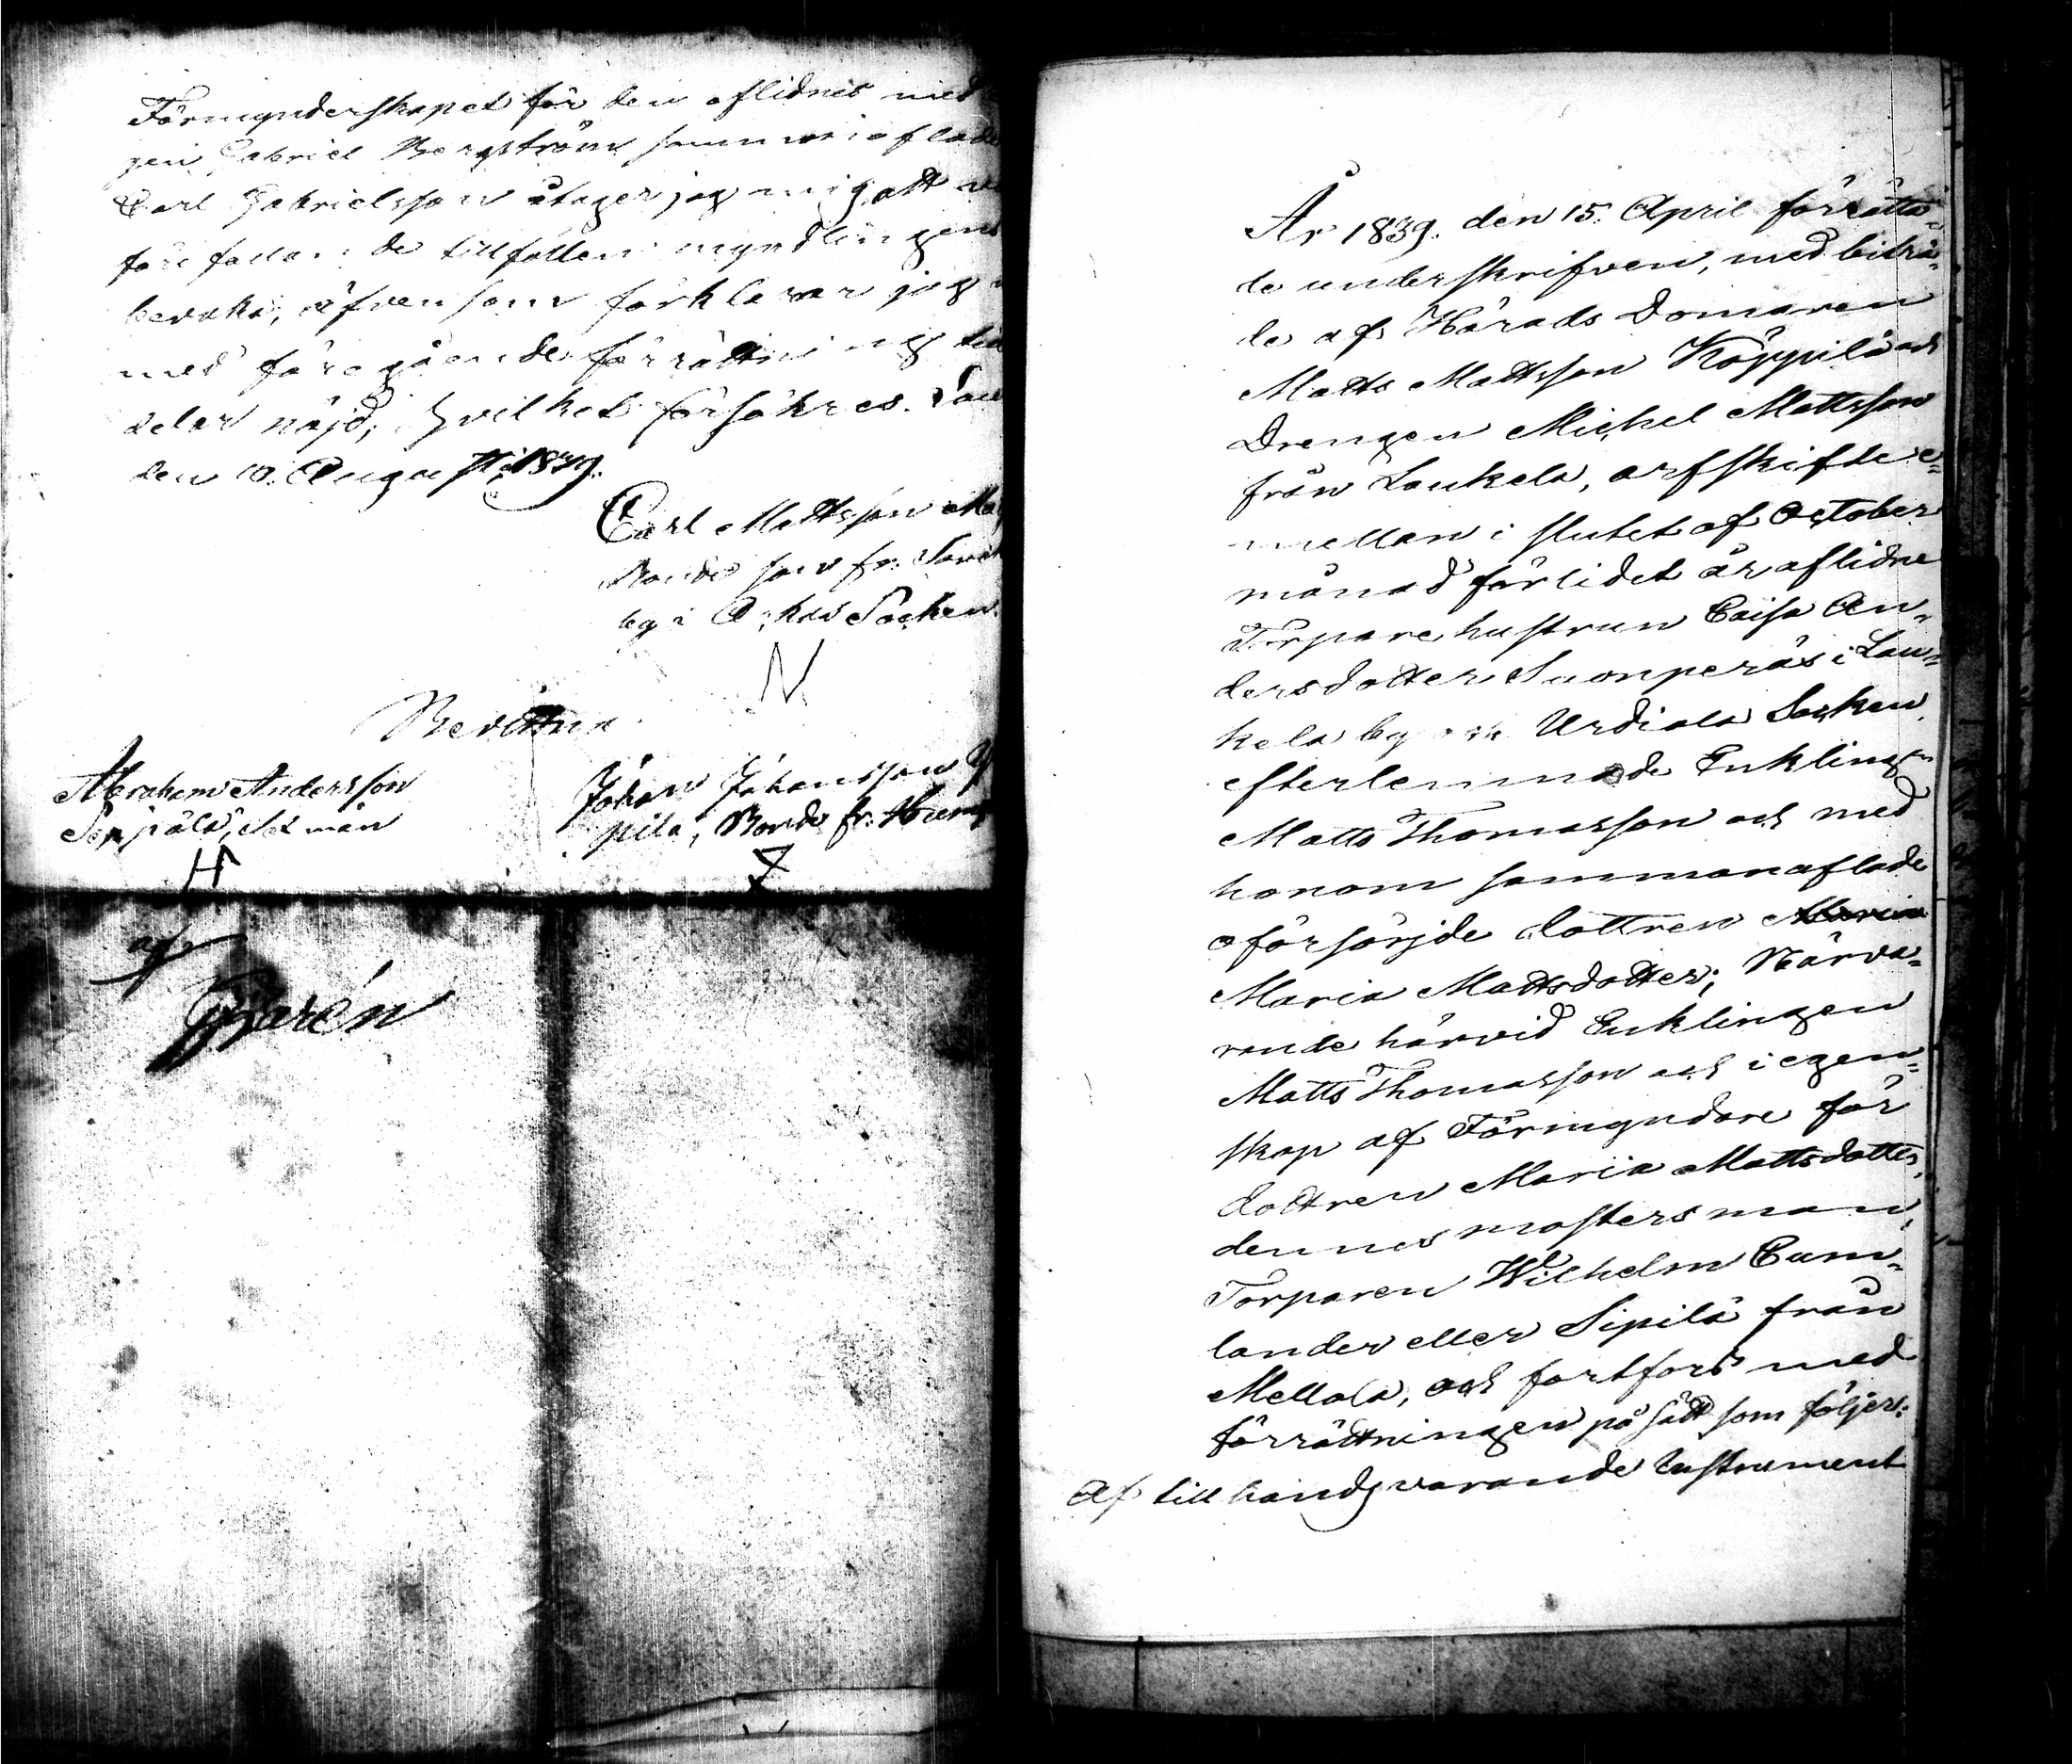 Förmynderskapet för den aflidnes med
gen Gabriel Bergström samman aflade
Carl Gabrielsson åtager jag mig att
före fallan de tillfällen myndlingens
bevaka, äfvensom förklarar jag
med föregående förrättning
delar nöjd, hvilket försäkres.
den 10. Augusti 1839.
Carl Mattsson
Bonde son fr.
by i Socken.
N
Bevittna
Abraham Andersson
Seppälä, Sexman
H
Johan Johansson
pila, Bonde fr. Hum
af
År 1839. den 15. April förrätta-
de underskrifven, med biträ-
de af Härads Domaren
Matts Mattsson Köppilä och
Drengen Michel Mattsson
från Laukela, arfskifte e-
mellan i slutet af October
månad förlidet år aflidne
Torpare hustrun Caisa An-
dersdotter Suonperäs i Lau-
kela by och Urdiala Socken
efterlemnade Enklingen
Matts Thomasson och med
honom sammanaflade
oförsörjde dottren Maria
Maria Mattsdotter; Närva-
rande härvid Enklingen
Matts Thomasson och i egen-
skap af Förmyndare för
dottren Maria Mattsdotter,
dennes mosters man,
Torparen Wilhelm Cum-
lander eller Sipilä från
Mellola, och fortfors med
förrättningen på sätt som följer:
Af till hands varande Instrument